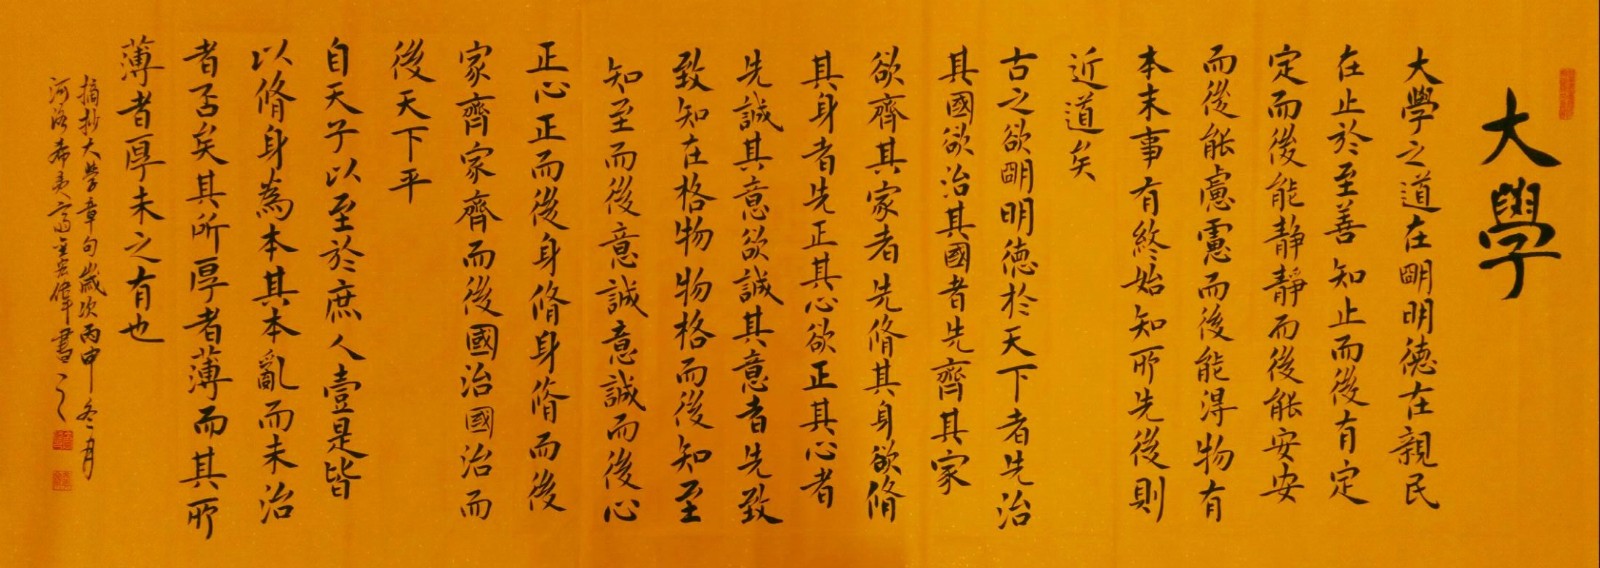 大學
大學之道在朙明德在親民
在止於至善知止而後有定
定而後能靜靜而後能安安
而後能慮慮而後能得物有
本末事有終始知所先後則
近道矣
古之欲朙明德於天下者先治
其國欲治其國者先齊其家
欲齊其家者先脩其身欲脩
其身者先正其心欲正其心者
先誠其意欲誠其意者先致
致知在格物物格而後知至
知至而後意誠意誠而後心
正心正而後身脩身脩而後
家齊家齊而後國治國治而
後天下平
自天子以至於庶人壹是皆
以脩身為本其本亂而末治
者否矣其所厚者薄而其所
薄者厚未之有也
摘抄大學章句歲次丙申冬月
河洛希夷齋主宏偉書之